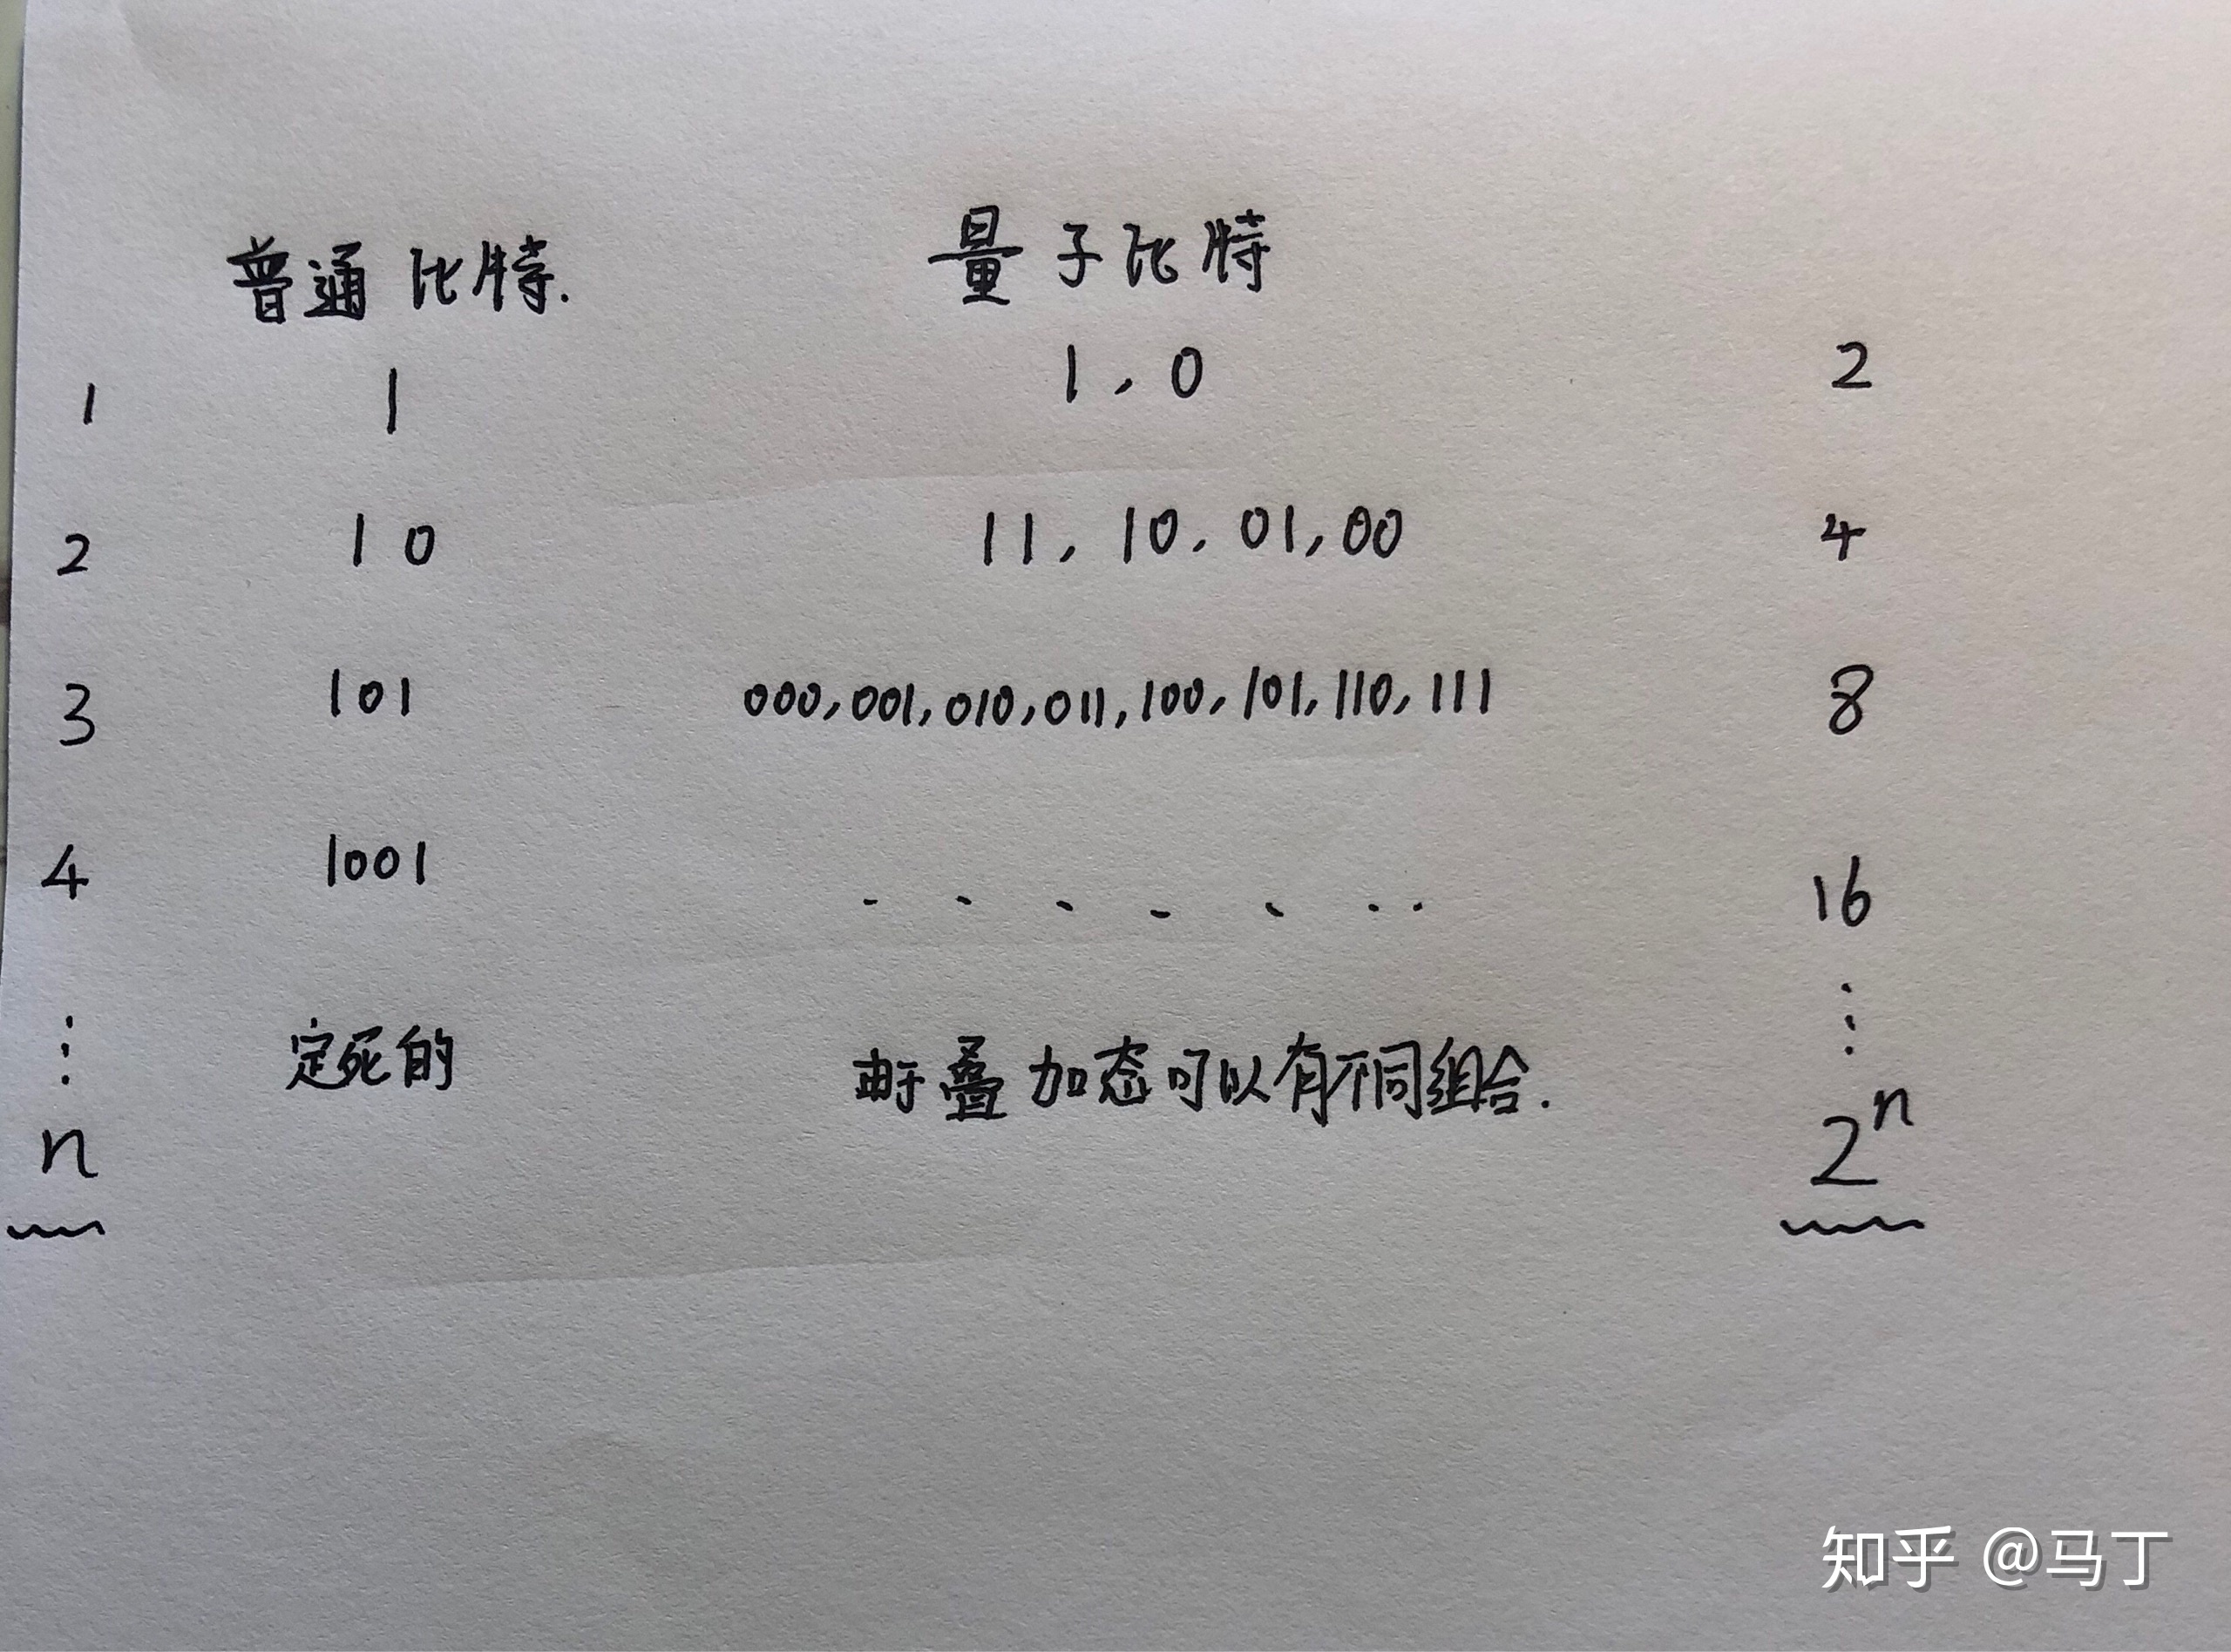 普通比特. 量子比特
1 1 1,0 2
2 10 11,10,01,00 4
3 101 000,001,010,011,100,101,110,111 8
4 1001 ....... 16
⋮ 定死的 由于叠加态可以有不同组合. ⋮
n 2ⁿ
知乎 @马丁